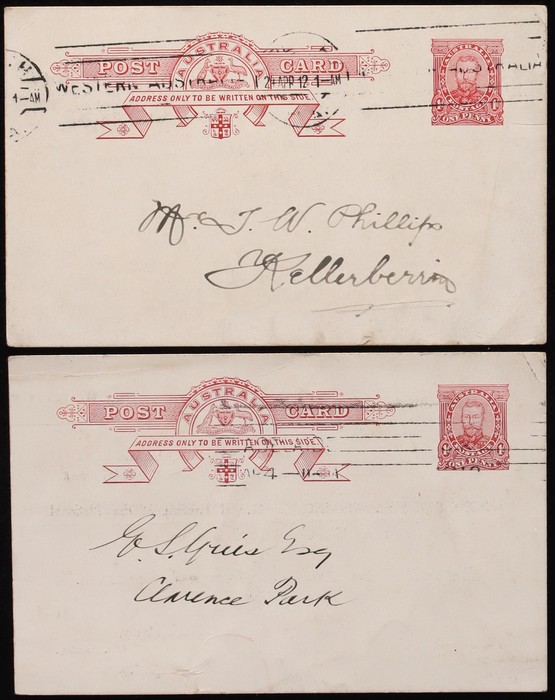 AUSTRALIA
POST CARD
ADDRESS ONLY TO BE WRITTEN ON THIS SIDE.
WESTERN AUSTRALIA
1-AM
AUSTRALIA
POSTAGE
ONE PENNY
Mr. J. W. Phillips
Kellerberrin
AUSTRALIA
POST CARD
ADDRESS ONLY TO BE WRITTEN ON THIS SIDE.
AUSTRALIA
POSTAGE
ONE PENNY
Esq
Clarence Park